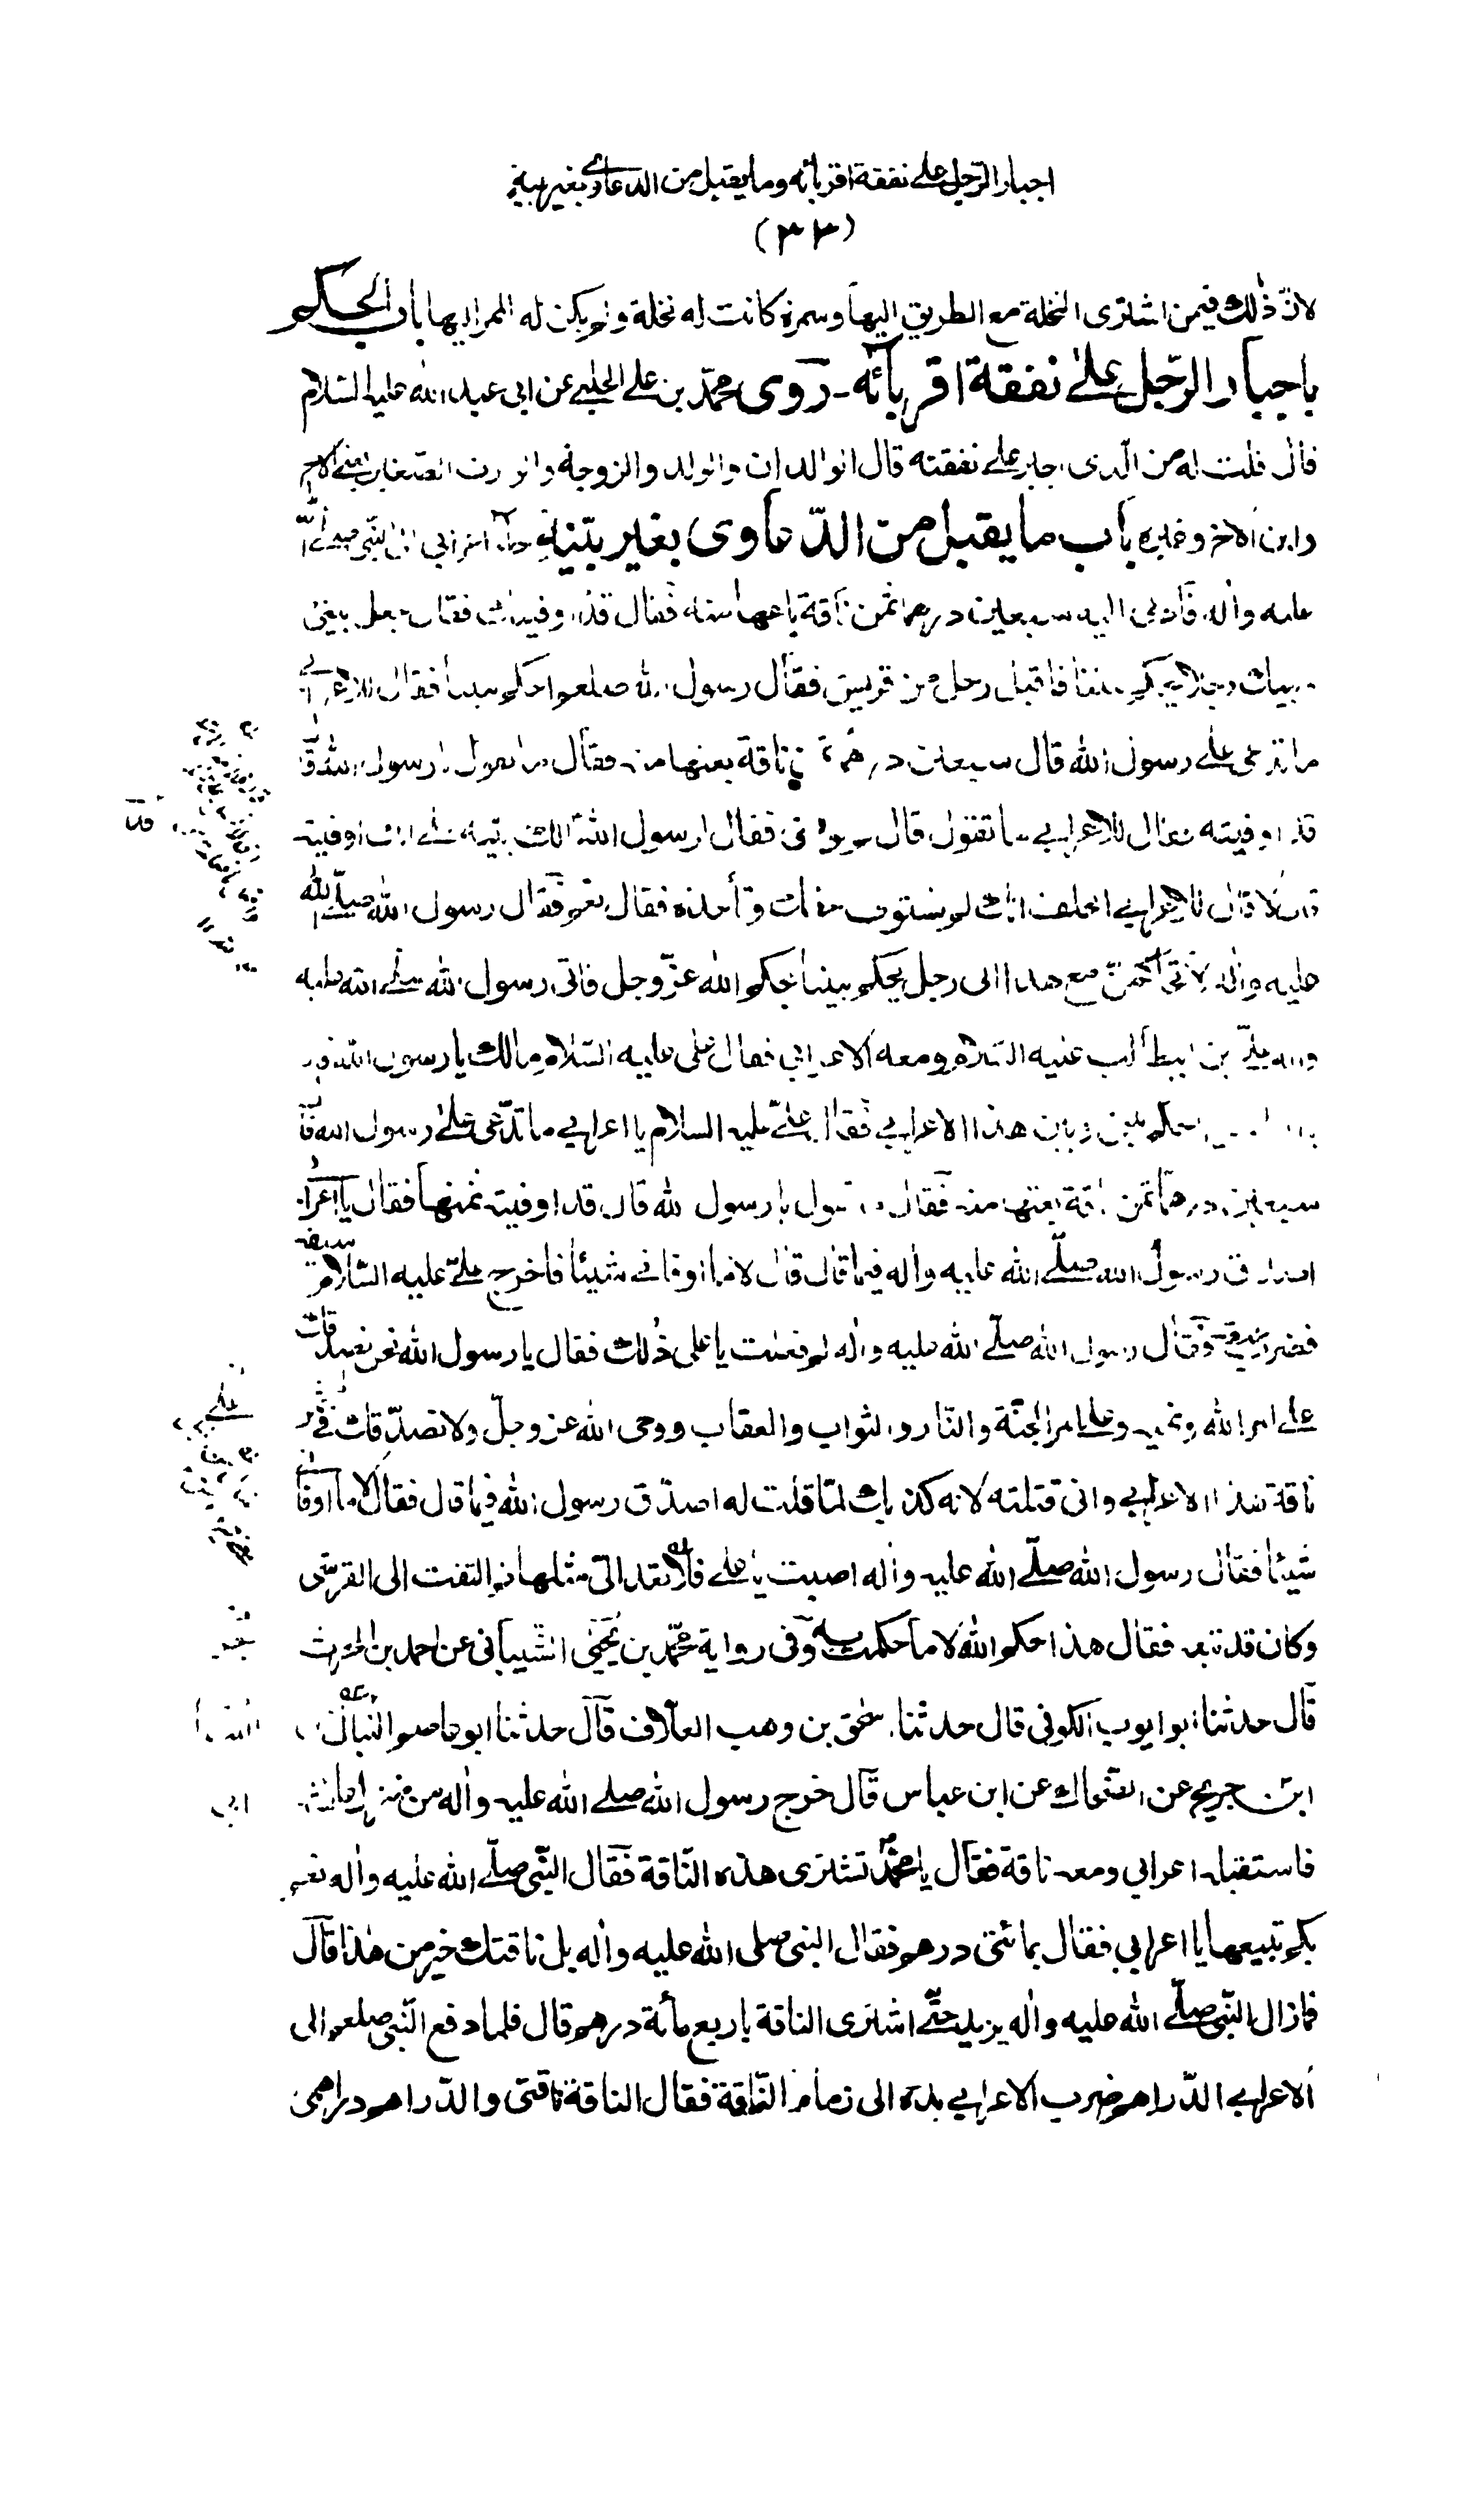 اجبار الرّجل على نفقة اقربائه وما يقبل من الدعاوى بغير بينة
(٣٣)
لانّ ذٰلك فيمن اشترى النخلة مع الطريق اليها وسمرة كانت له نخلة ولم يكن له الممر اليها باب الحكم
باجبار الرّجل على نفقة اقربائه ـ روى محمّد بن على الحلبي عن ابى عبد الله عليه السّلام
قال قلت له من الّذى اجبر على نفقته قال الوالدان والولد والزوجة والوارث الصّغير يعنى الاخ
وابن الاخ وغيره باب ما يقبل من الدّعاوى بغير بيّنة جاء اعرابي الى النّبى صلى الله
عليه واٰله فادعى اليه سبعين درهما ثمن ناقة باعها منه فقال قد اوفيتك فقال اجعل بينى
وبينك رجلا يحكم بيننا فاقبل رجل من قريش فقال رسول الله صلعم احكم بيننا فقال للاعرابي
ما تدعى على رسول الله قال سبعين درهما ثمن ناقة بعتها منه فقال ما تقول يا رسول الله قال
قد اوفيته فقال للاعرابي ما تقول قال لم يوفنى فقال لرسول الله الك بينة على انك اوفيته
قال لا قال للاعرابي اتحلف انك لم تستوف حقك وتأخذه فقال نعم فقال رسول الله صلّى الله
عليه واٰله لاتحاكمنّ مع هذا الى رجل يحكم بيننا بحكم الله عزّ وجل فاتى رسول الله صلى الله عليه
واله علىّ بن ابيطالب عليه السّلام ومعه الاعرابي فقال على عليه السّلام مالك يا رسول الله قال
يا ابا الحسن احكم بينى وبين هذا الاعرابي فقال علىّ عليه السلام يا اعرابي ما تدّعى على رسول الله قال
سبعين درهما ثمن ناقة بعتها منه فقال ما تقول يا رسول الله قال قد اوفيته ثمنها فقال يا اعرابي
اصدق رسول الله صلّى الله عليه واٰله فيما قال قال لا ما اوفانى شيئا فاخرج علىّ عليه السّلام سيفه
فضرب عنقه فقال رسول الله صلّى الله عليه واٰله لم فعلت يا على ذٰلك فقال يا رسول الله نحن نصدقك
على امر الله ونهيه وعلى امر الجنّة والنّار والثواب والعقاب ووحى الله عز وجلّ ولا نصدّقك فى ثمن
ناقة هذا الاعرابي وانى قتلته لانه كذبك لمّا قلت له اصدّق رسول الله فيما قال فقال لا ما اوفانى
شيئا فقال رسول الله صلّى الله عليه واٰله اصبت يا على فلا تعد الى مثلها ثم التفت الى القرشى
وكان قد تبعه فقال هذا حكم الله لا ما حكمت به وفى رواية محمّد بن يحيى الشّيبانى عن احمد بن الحرث
قال حدثنا ابو ايوب الكوفى قال حدثنا اسحق بن وهب العلّاف قال حدثنا ابو عاصم النبال عن
ابن جريح عن الضّحاك عن ابن عباس قال خرج رسول الله صلى الله عليه واٰله من منزل عائشة
فاستقبله اعرابي ومعه ناقة فقال يا محمّد تشترى هذه النّاقة فقال النّبى صلّى الله عليه واٰله نعم
بكم تبيعها يا اعرابي فقال بمائتى درهم فقال النبى صلى الله عليه واٰله بل ناقتك خير من هذا قال
فما زال النّبى صلّى الله عليه واٰله يزيد حتّى اشترى الناقة باربع مأئة درهم قال فلما دفع النّبى صلعم الى
الاعرابي الدّراهم ضرب الاعرابي يده الى زمام النّاقة فقال الناقة ناقتى والدّراهم دراهمى